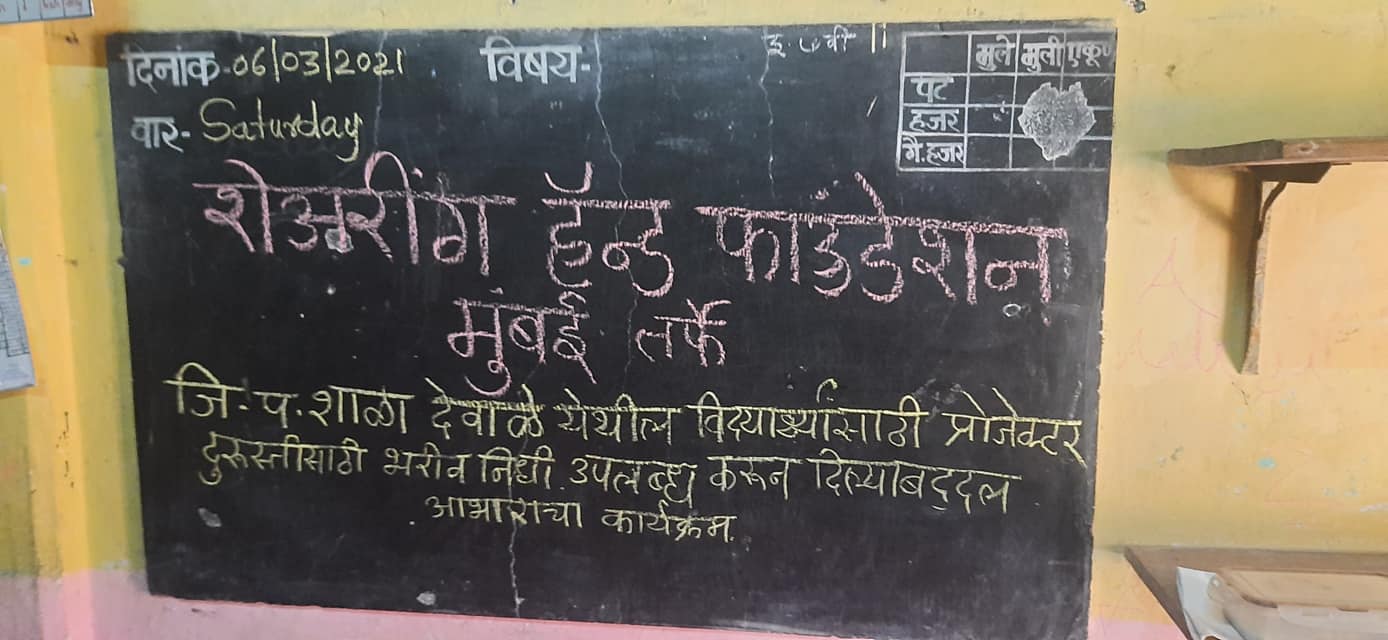 दिनांक-06/03/2021
विषय-
इ. ७ वी
वार- Saturday
मुले मुली एकूण
पट
हजर
गै.हजर
शेअरींग हॅन्ड फाउंडेशन
मुंबई तर्फे
जि.प.शाळा देवाळे येथील विद्यार्थ्यांसाठी प्रोजेक्टर
दुरूस्तीसाठी भरीव निधी उपलब्ध करून दिल्याबद्दल
आभाराचा कार्यक्रम.